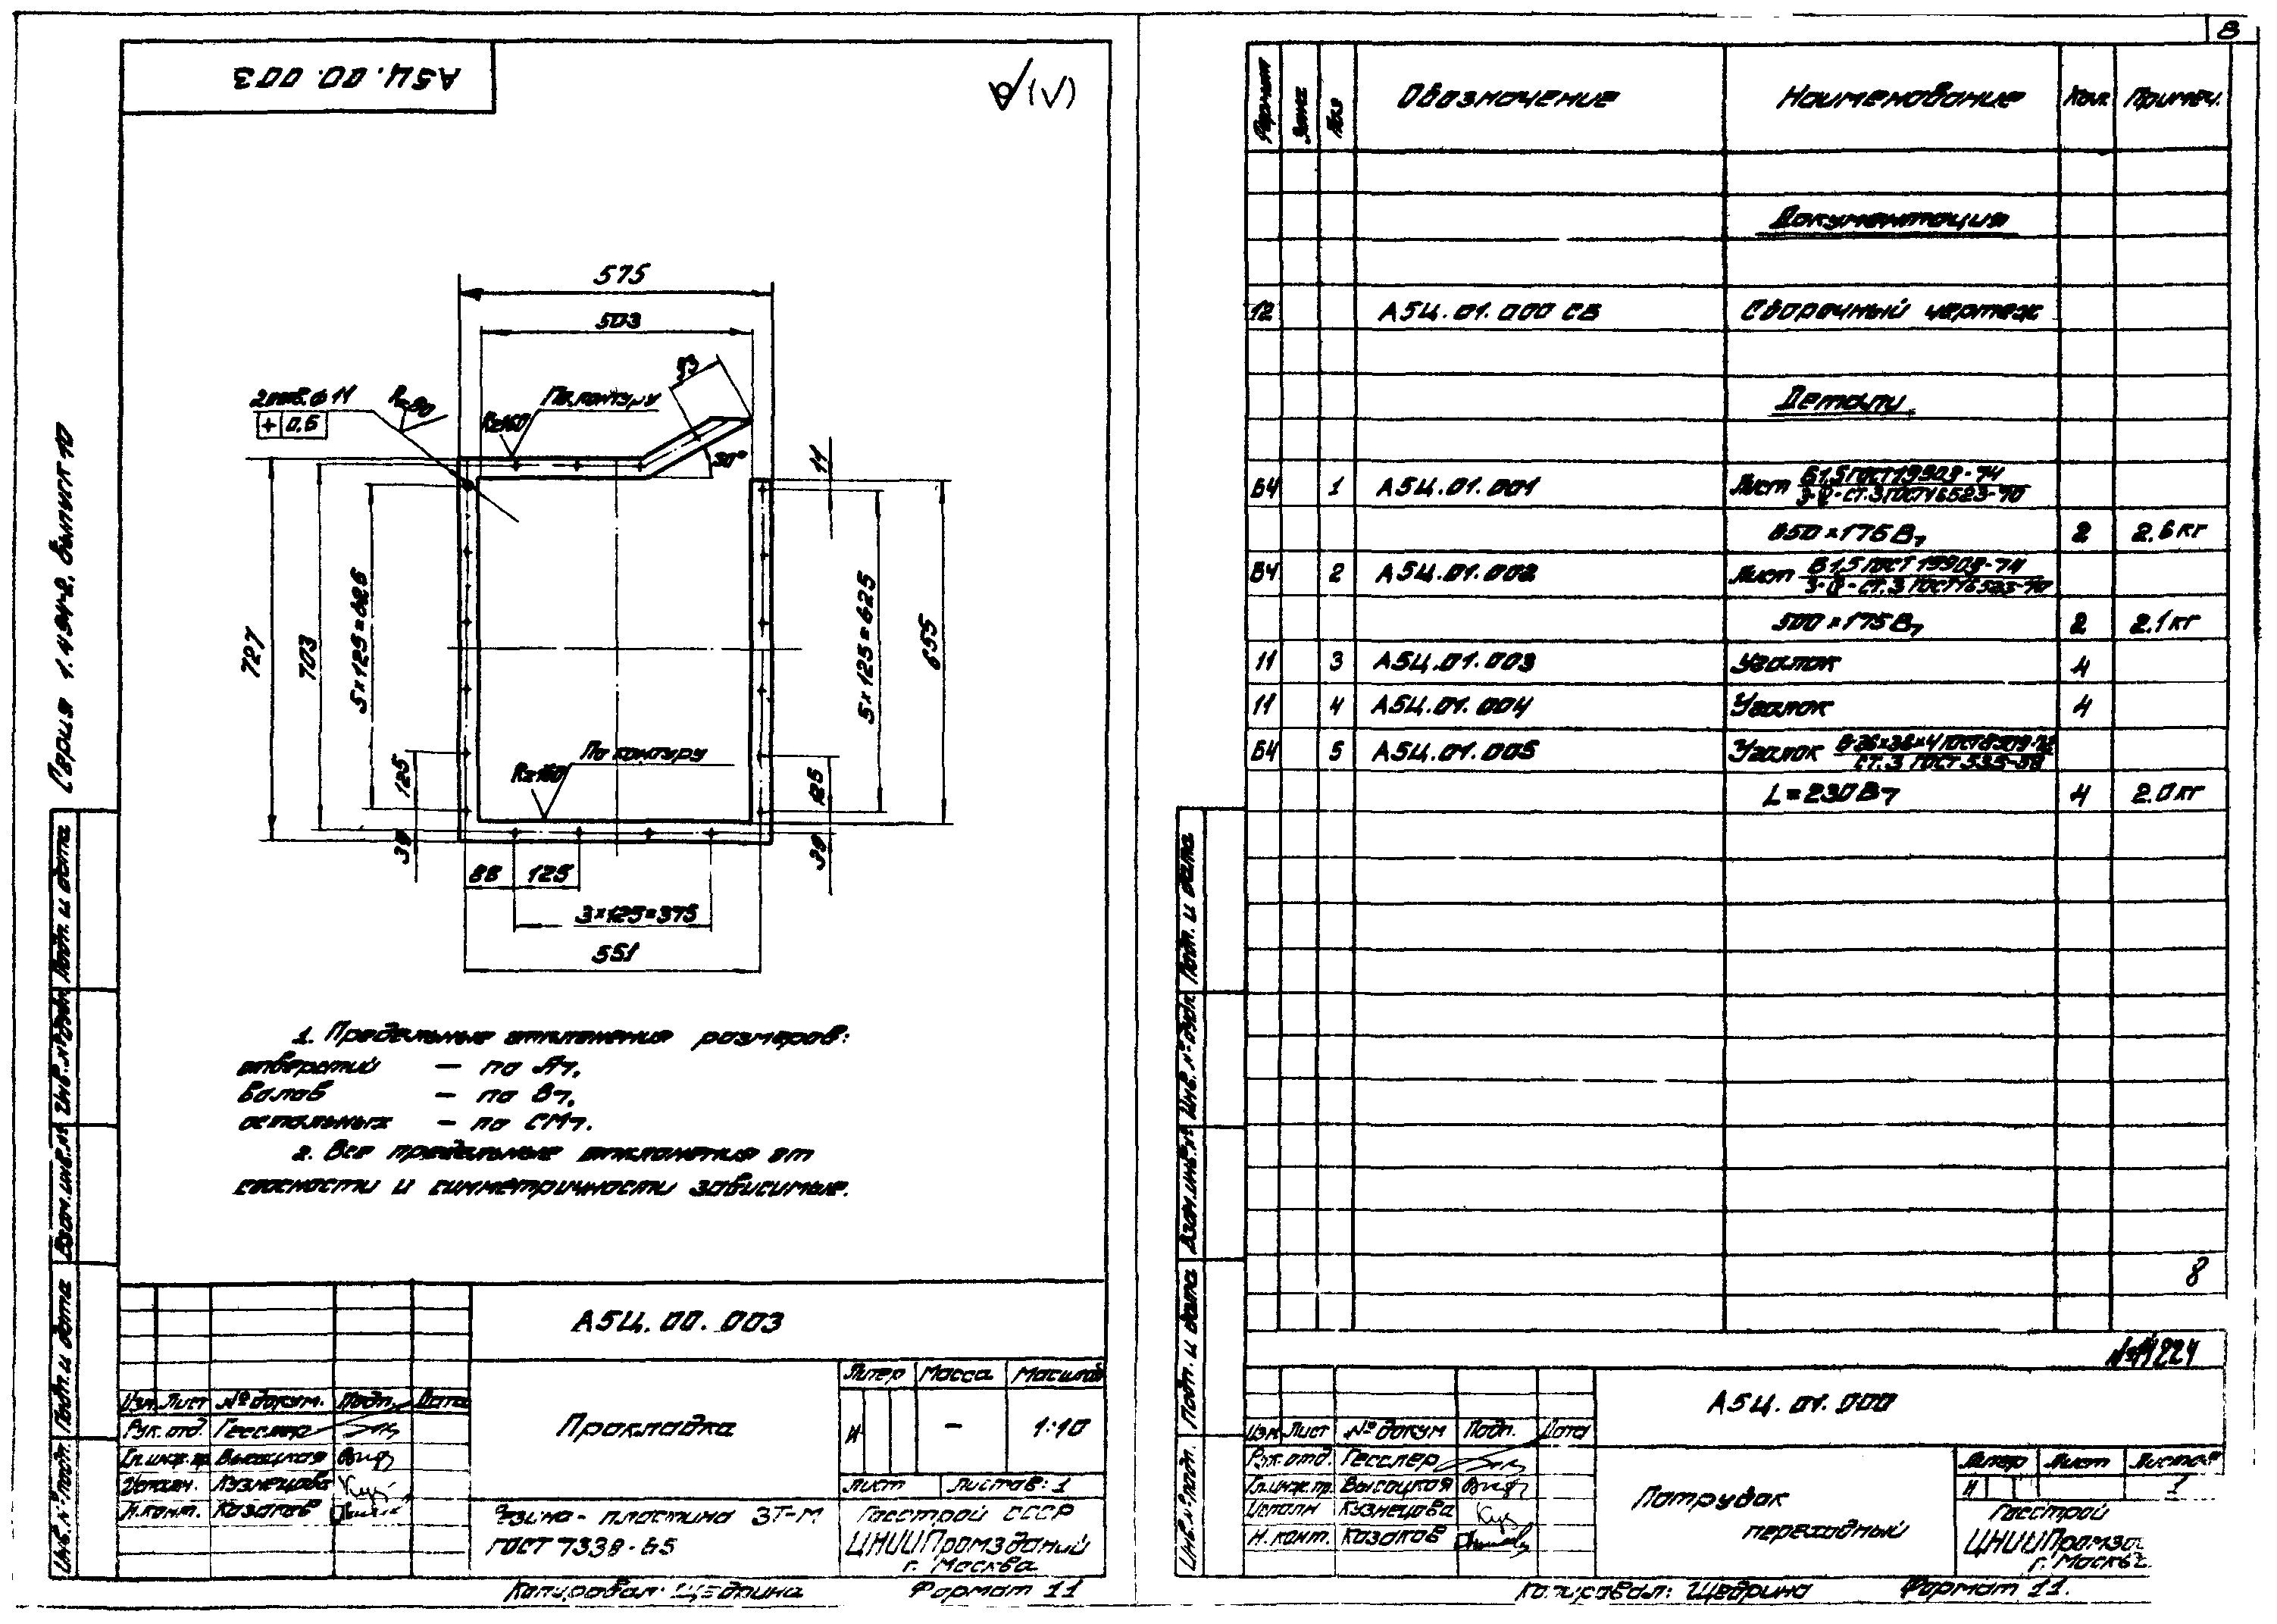 А5Ц. 00. 003
(√)
Серия 1.494-2, выпуск 10
575
503
93
2 отв. ф 11
0,6
Rz80
Rz160
По контуру
30°
11
727
703
5×125=625
5×125=625
655
125
39
Rz160
По контуру
125
39
88
125
3×125=375
551
1. Предельные отклонения размеров:
отверстий — по А7,
валов — по В7,
остальных — по СМ7.
2. Все предельные отклонения от
соосности и симметричности зависимые.
Инв.№ подл.
Подп. и дата
Взам.инв.№
Инв.№ дубл.
Подп. и дата
А5Ц. 00. 003
Изм. Лист № докум. Подп. Дата
Рук. отд. Гесслер
Гл. инж. пр. Высоцкая
Исполн. Кузнецова
Н. конт. Казаков
Прокладка
Литер Масса Масштаб
И — 1:10
Лист Листов: 1
Резина - пластина 3Т-М
ГОСТ 7338-65
Госстрой СССР
ЦНИИПромзданий
г. Москва
Копировал: Щедрина Формат 11
8
Формат Зона Поз Обозначение Наименование Кол. Примеч.
Документация
12 А5Ц. 01. 000 СБ Сборочный чертеж
Детали
Б4 1 А5Ц. 01. 001 Лист Б 1,5 ГОСТ 19903-74
3-IV-СТ.3 ГОСТ 16523-70
650×175 В7 2 2.6 кг
Б4 2 А5Ц. 01. 002 Лист Б 1,5 ГОСТ 19903-74
3-IV-СТ.3 ГОСТ 16523-70
500×175 В7 2 2.1 кг
11 3 А5Ц. 01. 003 Уголок 4
11 4 А5Ц. 01. 004 Уголок 4
Б4 5 А5Ц. 01. 005 Уголок Б-36×36×4 ГОСТ 8509-72
СТ. 3 ГОСТ 535-58
L=230 В7 4 2.0 кг
8
Инв.№ подл.
Подп. и дата
Взам.инв.№
Инв.№ дубл.
Подп. и дата
А5Ц. 01. 000
Изм. Лист № докум Подп. Дата
Рук. отд. Гесслер
Гл. инж. пр. Высоцкая
Исполн Кузнецова
Н. конт. Казаков
Патрубок
переходный
Литер Лист Листов
И 1
Госстрой
ЦНИИПромзда
г. Москва
Копировал: Щедрина Формат 11.